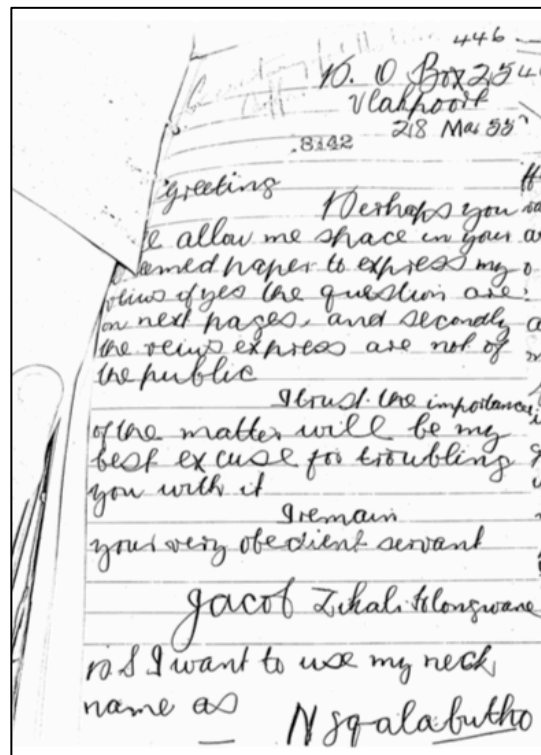 446
P. O Box 254
Vlakpoort
28 Mar 55
.8142
Greeting
Perhaps you
allow me space in your
emed paper to express my
veiws if yes the question are
on next pages, and secondly
the veiws express are not of
the public
I trust the importance
of the matter will be my
best excuse for troubling
you with it
I remain
your very obedient servant
Jacob Zikali Hlongwane
P S I want to use my neck
name as
Nsqalabutho